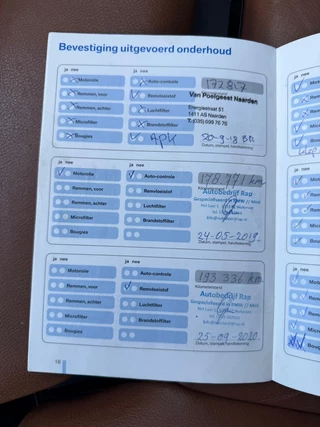 Bevestiging uitgevoerd onderhoud
ja nee
ja nee
Motorolie
Auto-controle
Remmen, voor
Remvloeistof
Remmen, achter
Luchtfilter
Microfilter
Brandstoffilter
Bougies
Apk
172817
Van Poelgeest Naarden
Energiestraat 51
1411 AS Naarden
T. (035) 699 76 76
20-9-18
Datum, stempel, handtekening
ja nee
ja nee
Motorolie
Auto-controle
Remmen, voor
Remvloeistof
Remmen, achter
Luchtfilter
Microfilter
Brandstoffilter
Bougies
178.771 km
Autobedrijf Rap
Gespecialiseerd in BMW // MINI
24-05-2019
Datum, stempel, handtekening
ja nee
ja nee
Motorolie
Auto-controle
Remmen, voor
Remvloeistof
Remmen, achter
Luchtfilter
Microfilter
Brandstoffilter
Bougies
193 336 km
Kilometerstand
Autobedrijf Rap
Gespecialiseerd in BMW // MINI
25-09-2020
Datum, stempel, handtekening